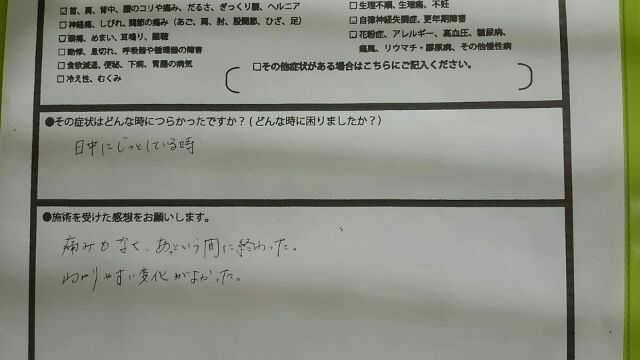 ☑首、肩、背中、腰のコリや痛み、だるさ、ぎっくり腰、ヘルニア
□神経痛、しびれ、関節の痛み(あご、肩、肘、股関節、ひざ、足)
□頭痛、めまい、耳鳴り、難聴
□動悸、息切れ、呼吸器や循環器の障害
□食欲減退、便秘、下痢、胃腸の病気
□冷え性、むくみ
□生理不順、生理痛、不妊
☑自律神経失調症、更年期障害
□花粉症、アレルギー、高血圧、糖尿病、
痛風、リウマチ・膠原病、その他慢性病
□その他症状がある場合はこちらにご記入ください。
●その症状はどんな時につらかったですか?(どんな時に困りましたか?)
日中にじっとしている時
●施術を受けた感想をお願いします。
痛みがなく、あっという間に終わった。
わかりやすい変化がよかった。